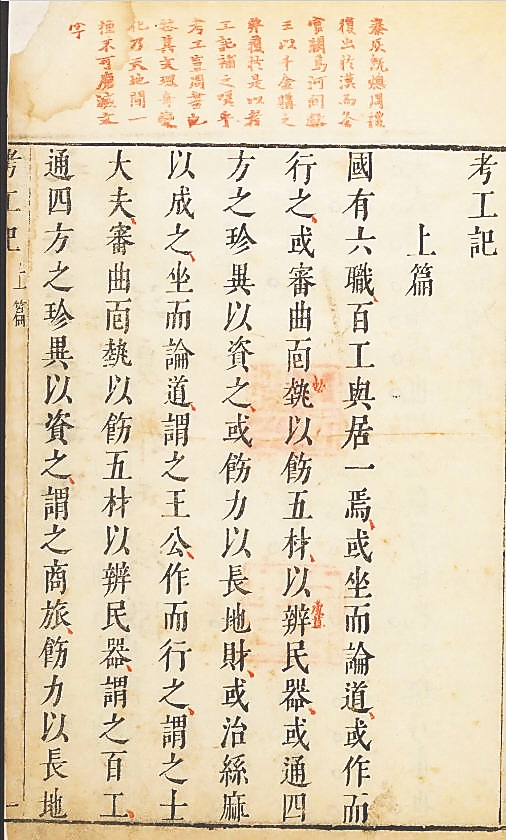 秦灰既燼周禮
復出於漢而冬
官闕焉河間獻
王以千金購之
弗獲於是以考
工記補之嗟乎
考工豈周書也
其文理奇變
化乃天地間一
種不可磨滅文
字
考工記
上篇
國有六職百工與居一焉或坐而論道或作而
行之或審曲面埶以飭五材以辨民器或通四
方之珍異以資之或飭力以長地財或治絲麻
以成之坐而論道謂之王公作而行之謂之士
大夫審曲面埶以飭五材以辨民器謂之百工
通四方之珍異以資之謂之商旅飭力以長地
考工記 上篇 一